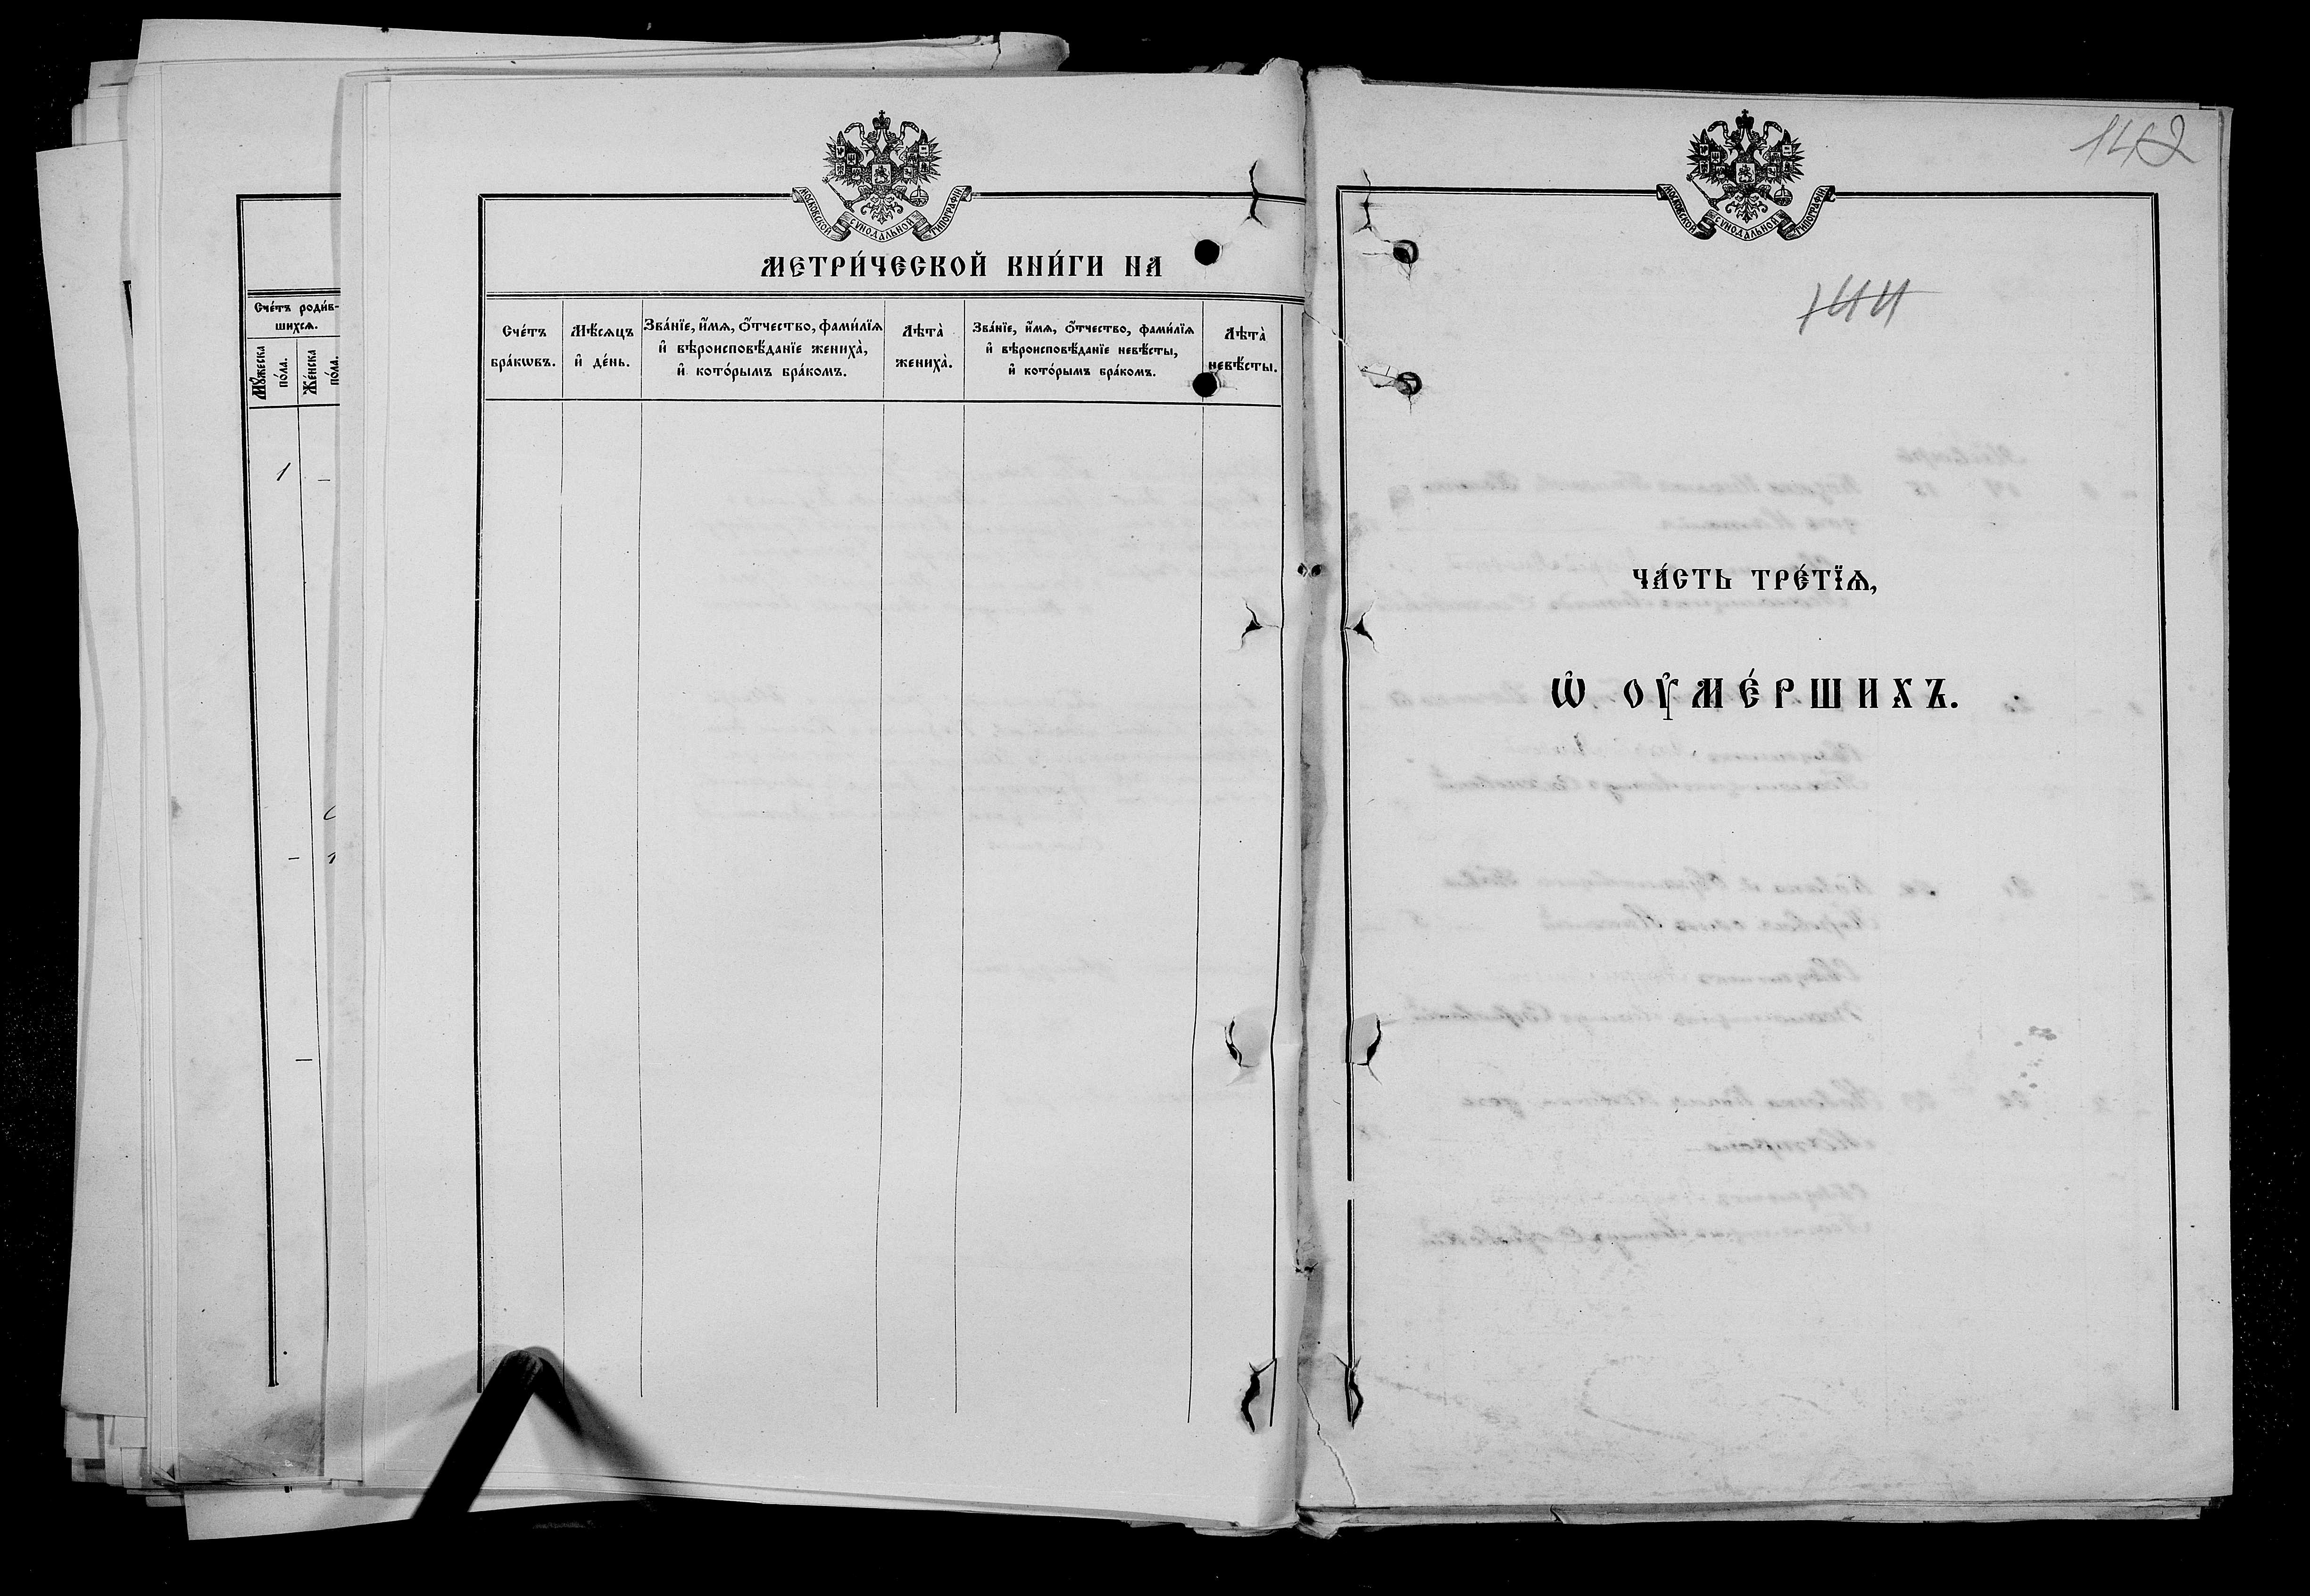 Сче́тъ роди́в-
шихсѧ.
Мꙋ́жеска
по́ла.
Же́нска
по́ла.
1 –
– 1
–
МОСКОВСКОЙ СѴНОДАЛЬНОЙ ТИПОГРАФІИ
МЕТРИ́ЧЕСКОЙ КНИ́ГИ НА
Сче́тъ
бра́кѡвъ.
Мѣ́сѧцъ
и҆ де́нь.
Зва́нїе, и҆́мѧ, ѻ҆́тчество, фами́лїѧ
и҆ вѣроисповѣ́данїе жениха̀,
и҆ кото́рымъ бра́комъ.
Лѣта̀
жениха̀.
Зва́нїе, и҆́мѧ, ѻ҆́тчество, фами́лїѧ
и҆ вѣроисповѣ́данїе невѣ́сты,
и҆ кото́рымъ бра́комъ.
Лѣта̀
невѣ́сты.
142
МОСКОВСКОЙ СѴНОДАЛЬНОЙ ТИПОГРАФІИ
144
ЧА́СТЬ ТРЕ́ТЇѦ,
Ѡ҆ ОУ҆МЕ́РШИХЪ.